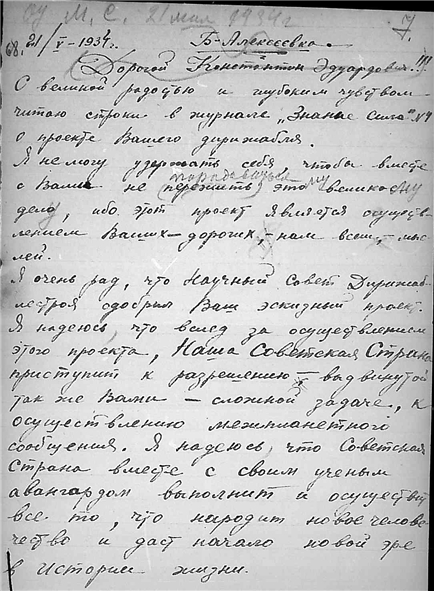 М. С. 21 мая 1934 г 7.
68. 21/V - 1934 г. Б-Алексеевка.
Дорогой Константин Эдуардович!!!
С великой радостью и глубоким чувством
читаю строки в журнале „Знание сила" №4
о проекте Вашего дирижабля.
Я не могу удержать себя чтобы вместе
порадоваться
с Вами не пережить это великое му
делу, ибо этот проект является осуществ-
лением Ваших – дорогих, нам всем, мыс-
лей.
Я очень рад, что Научный Совет Дирижаб-
лестроя одобрил Ваш эскизный проект.
Я надеюсь, что вслед за осуществлением
этого проекта, Наша Советская Страна
приступит к разрешению, выдвинутой
так же Вами – сложной задаче, к
осуществлению межпланетного
сообщения. Я надеюсь, что Советская
Страна вместе с своим ученым
авангардом выполнит и осуществит
все то, что народит новое челове-
чество и даст начало новой эре
в истории жизни.